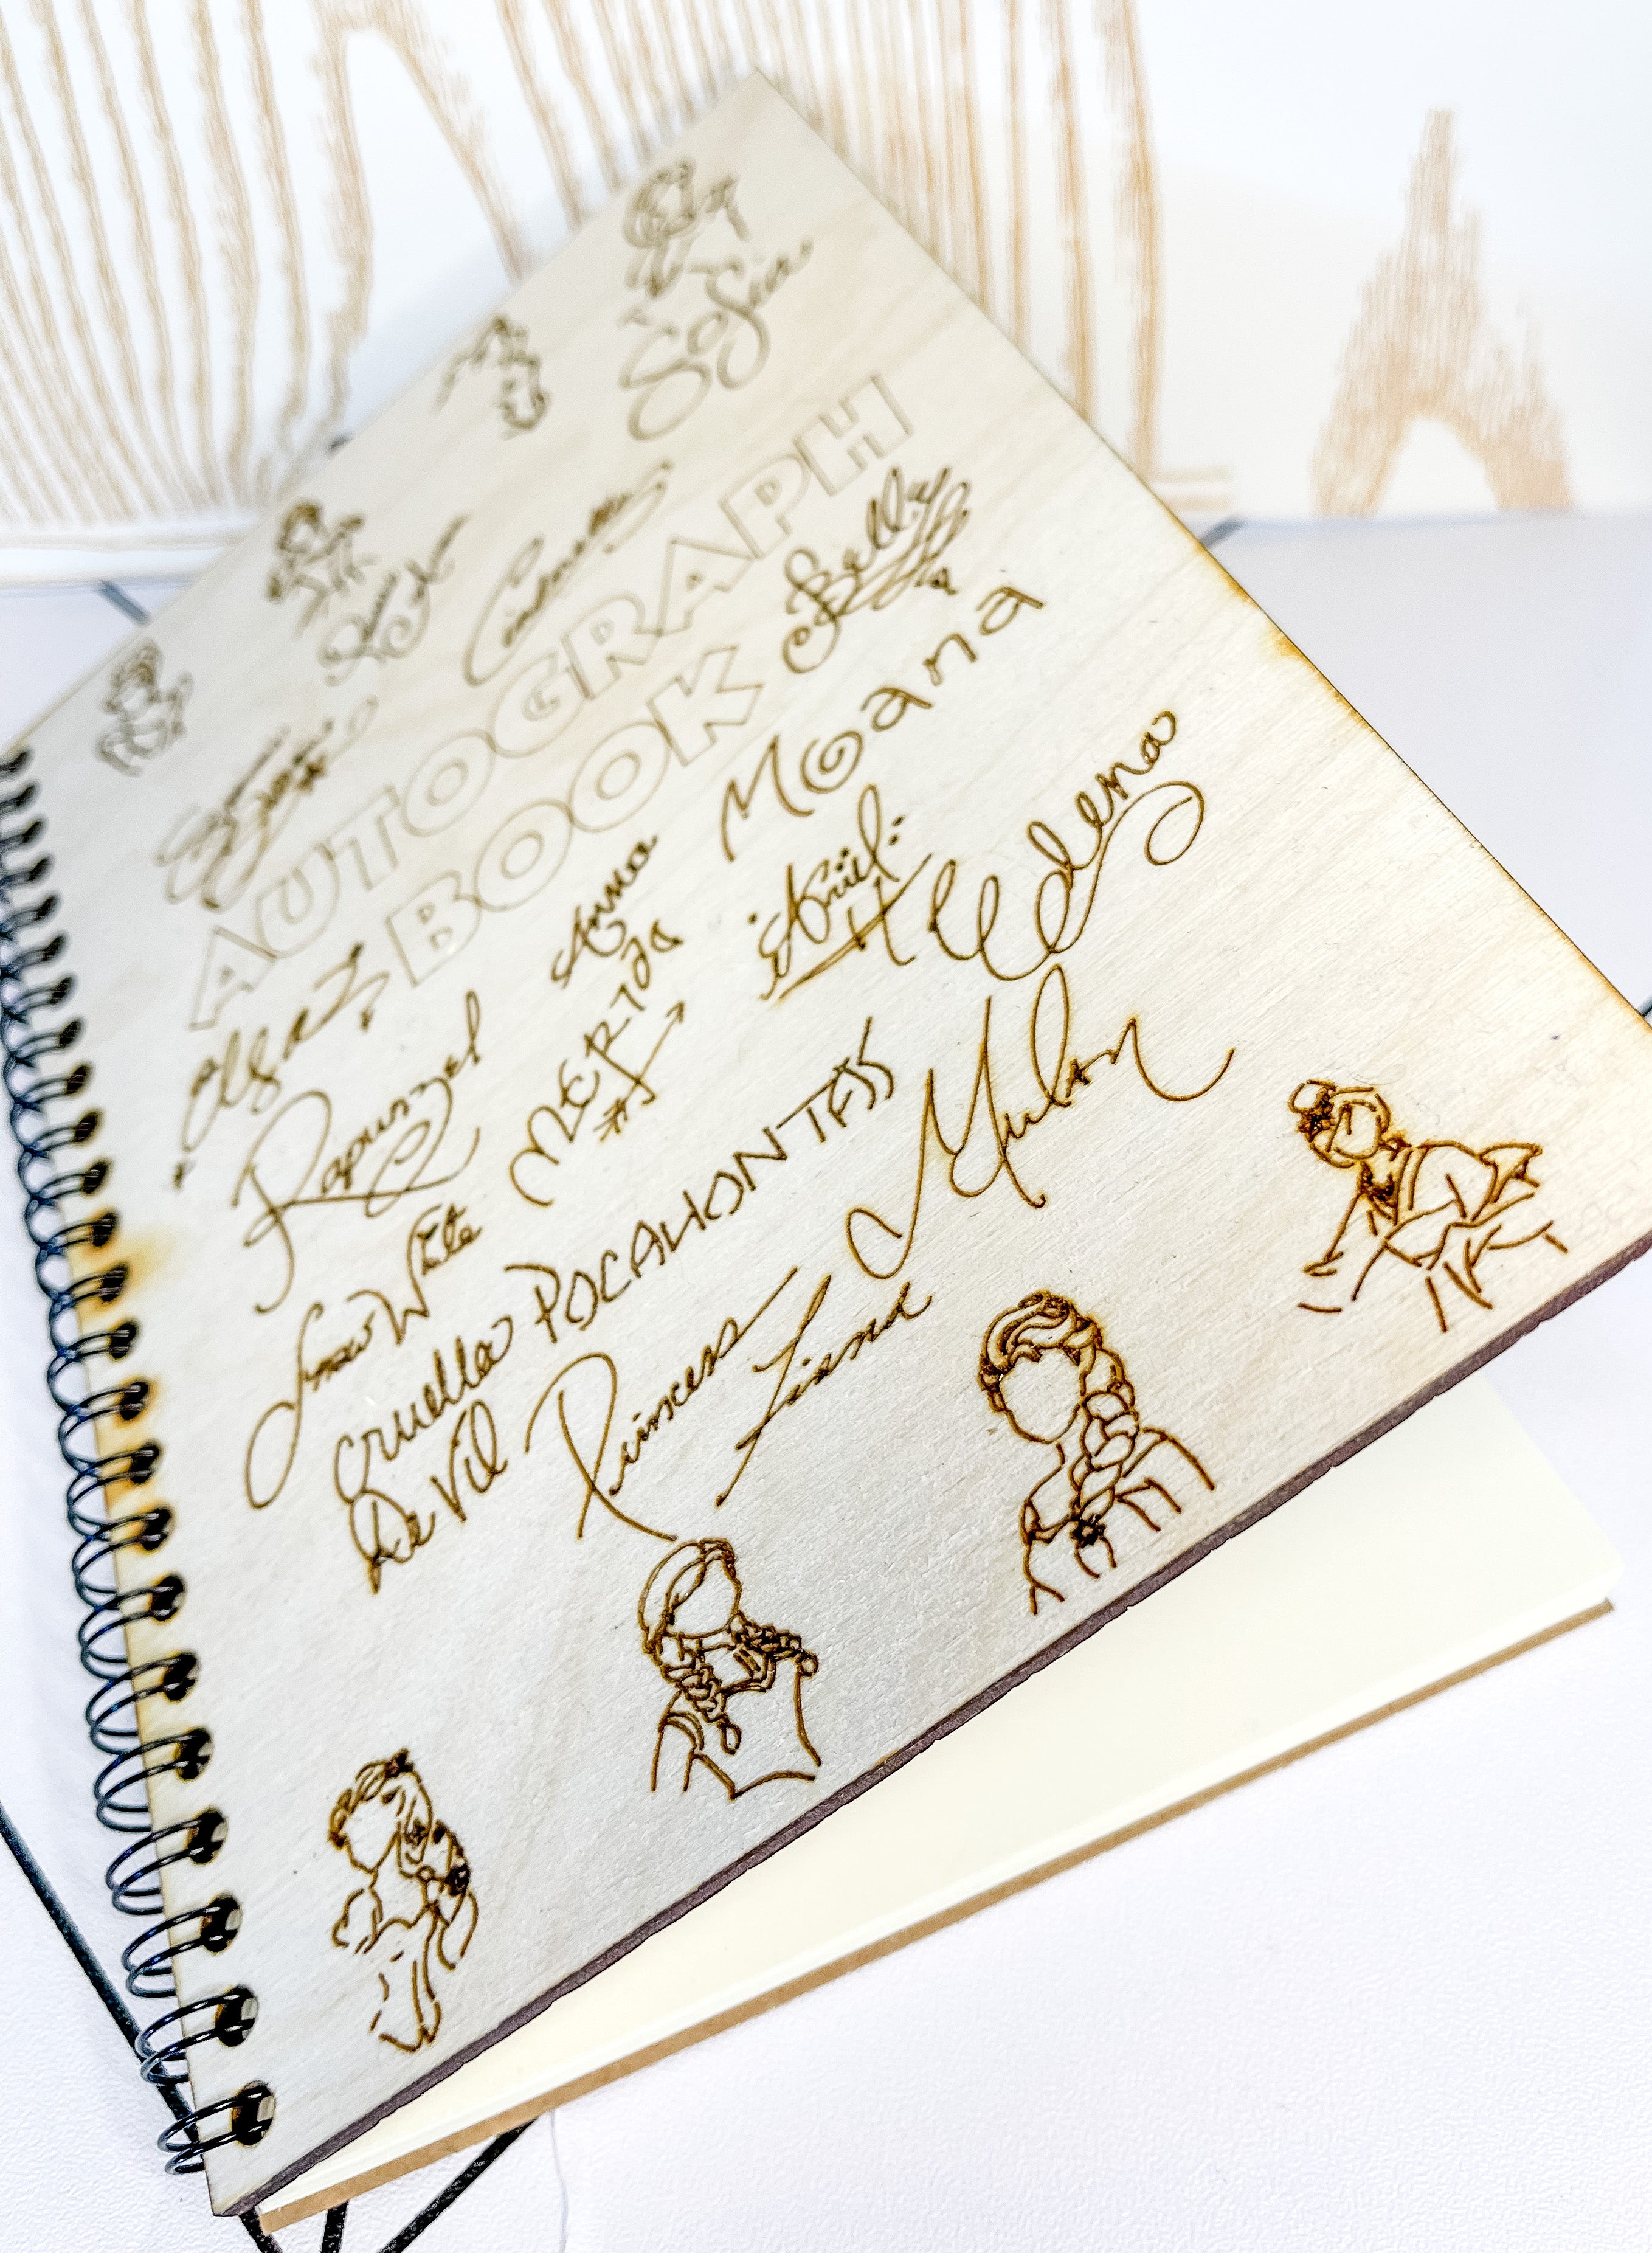 Sofia
Cinderella
AUTOGRAPH
BOOK
Belle
Moana
Anna
Elsa
Ariel
Elena
Rapunzel
MERIDA
Mulan
Snow White
POCAHONTAS
Cruella
De Vil
Princess
Tiana